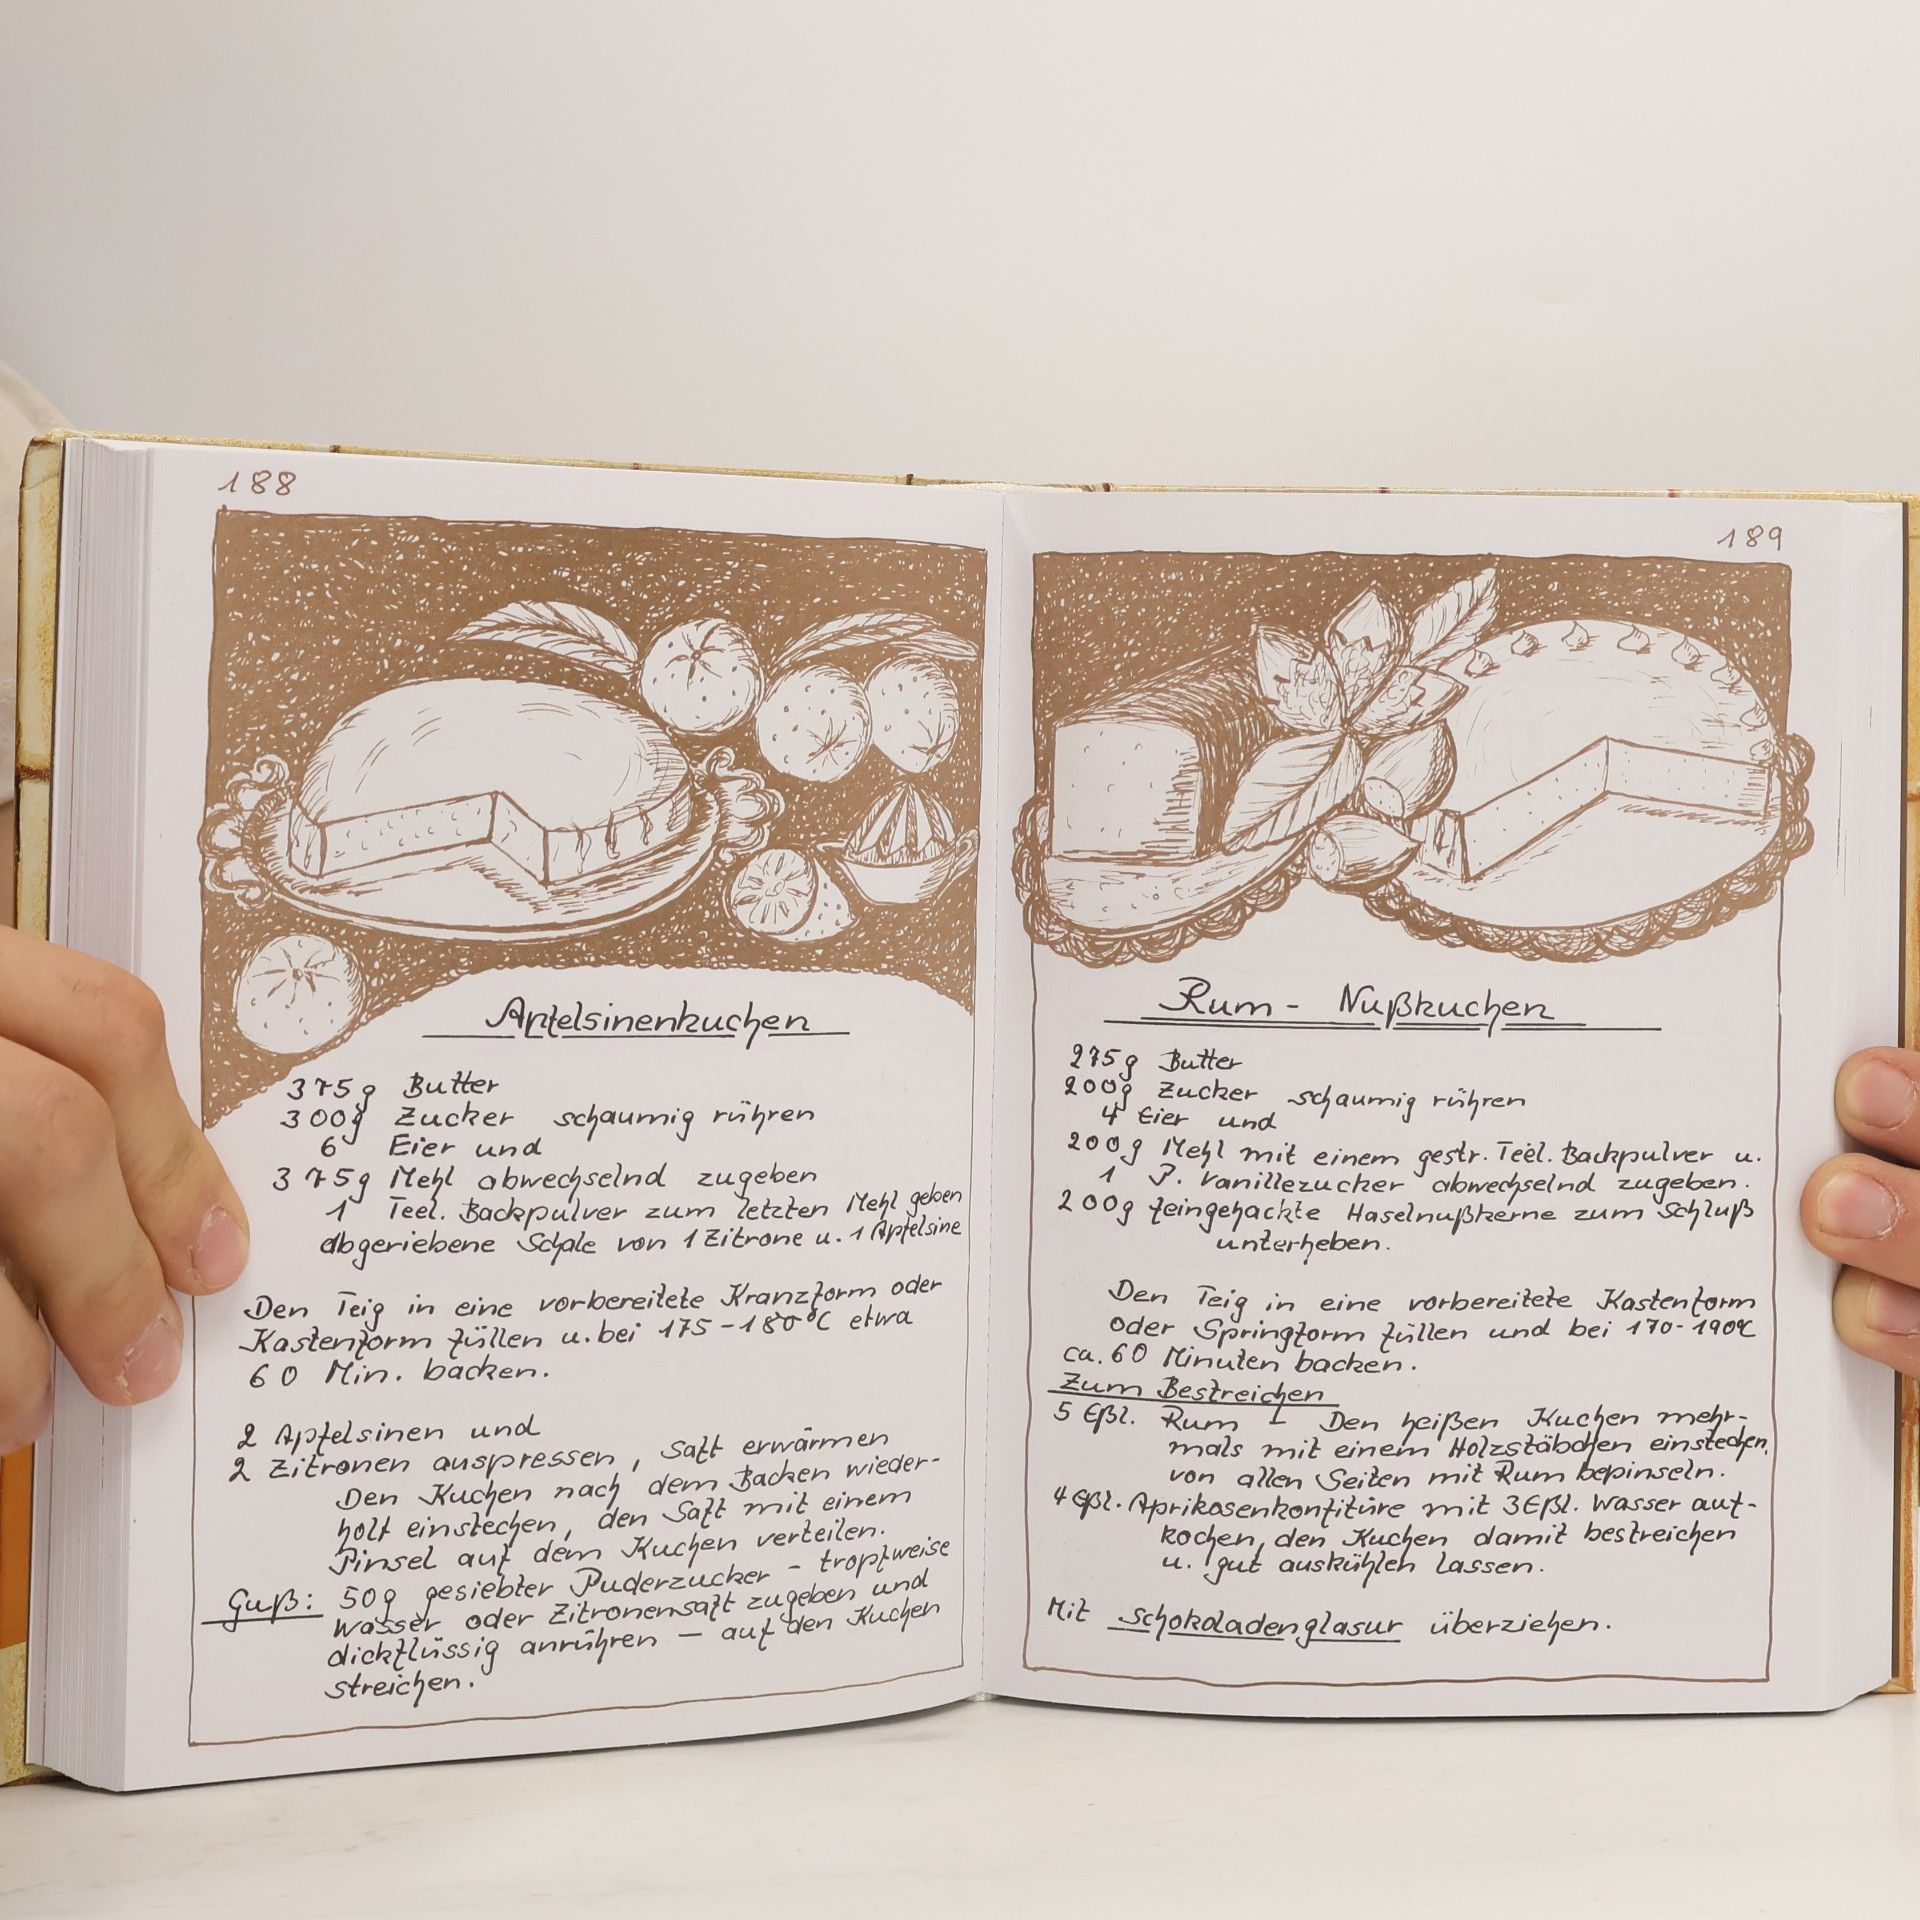 188
Apfelsinenkuchen
375g Butter
300g Zucker schaumig rühren
6 Eier und
375g Mehl abwechselnd zugeben
1 Teel. Backpulver zum letzten Mehl geben
abgeriebene Schale von 1 Zitrone u. 1 Apfelsine
Den Teig in eine vorbereitete Kranzform oder
Kastenform füllen u. bei 175-180°C etwa
60 Min. backen.
2 Apfelsinen und
2 Zitronen auspressen, Saft erwärmen
Den Kuchen nach dem Backen wieder-
holt einstechen, den Saft mit einem
Pinsel auf dem Kuchen verteilen.
Guß: 50g gesiebter Puderzucker - tropfweise
Wasser oder Zitronensaft zugeben und
dickflüssig anrühren - auf den Kuchen
streichen.
189
Rum - Nußkuchen
275g Butter
200g Zucker schaumig rühren
4 Eier und
200g Mehl mit einem gestr. Teel. Backpulver u.
1 P. Vanillezucker abwechselnd zugeben.
200g feingehackte Haselnußkerne zum Schluß
unterheben.
Den Teig in eine vorbereitete Kastenform
oder Springform füllen und bei 170-190°C
ca. 60 Minuten backen.
Zum Bestreichen
5 Eßl. Rum - Den heißen Kuchen mehr-
mals mit einem Holzstäbchen einstechen,
von allen Seiten mit Rum bepinseln.
4 Eßl. Aprikosenkonfitüre mit 3 Eßl. Wasser auf-
kochen, den Kuchen damit bestreichen
u. gut auskühlen lassen.
Mit Schokoladenglasur überziehen.